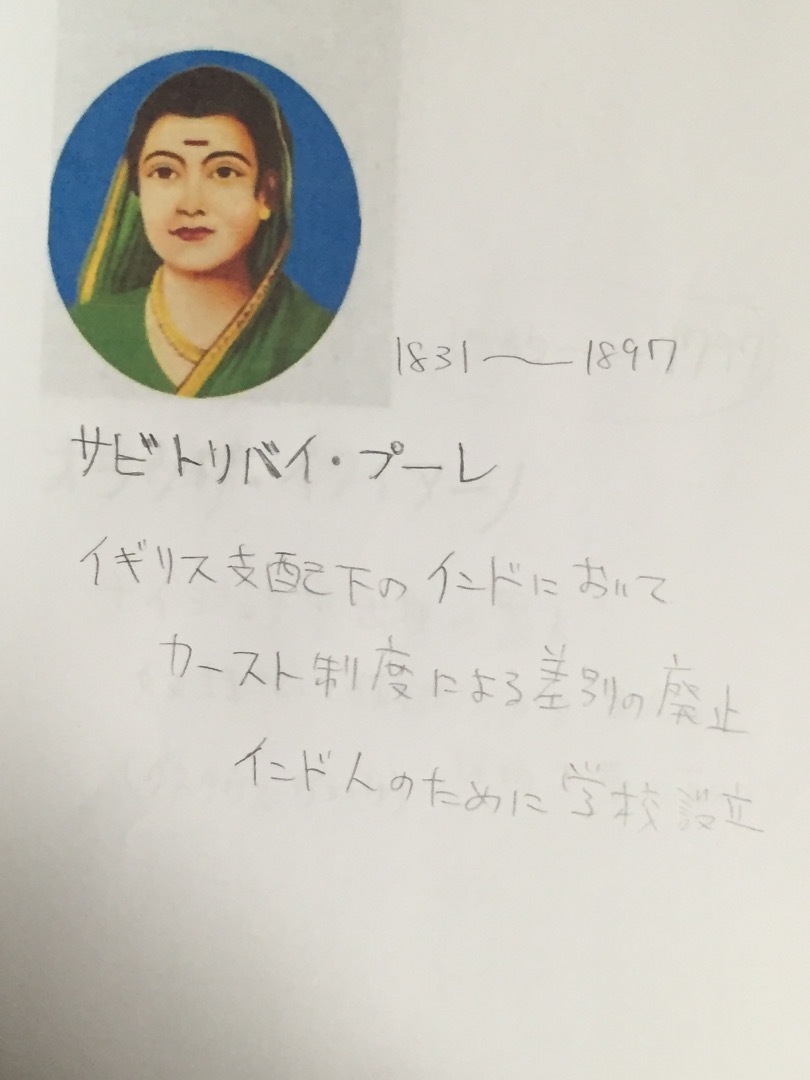 1831〜1897
サビトリバイ・プーレ
イギリス支配下のインドにおいて
カースト制度による差別の廃止
インド人のために学校設立